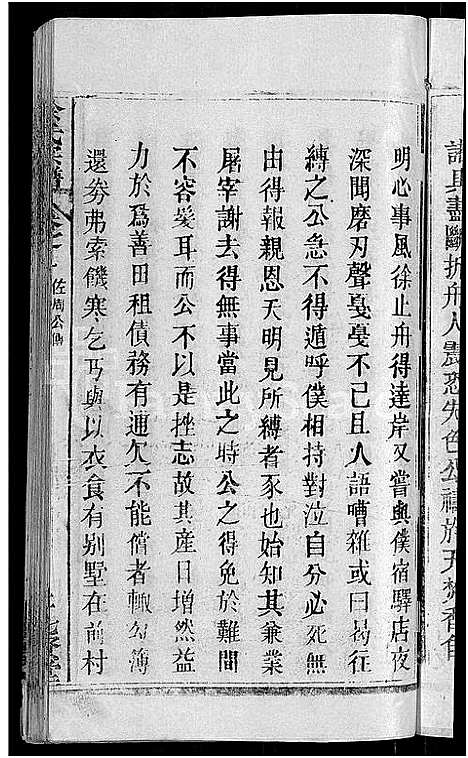 諸具盡斷折舟人盡恐失色公禱於天焚香自
明心事風徐止舟得達岸又嘗與僕宿驛店夜
深聞磨刃聲戞戞不已且人語嘈雜或曰曷往
縛之公急不得遁呼僕相持對泣自分必死無
由得報親恩天明見所縛者豕也始知其兼業
屠宰謝去得無事當此之時公之得免於難間
不容髮耳而公不以是挫志故其產日增然益
力於爲善田租債務有逋欠不能償者輙勾簿
還劵弗索饑寒乞丐與以衣食有别墅在前村
佐周公傳